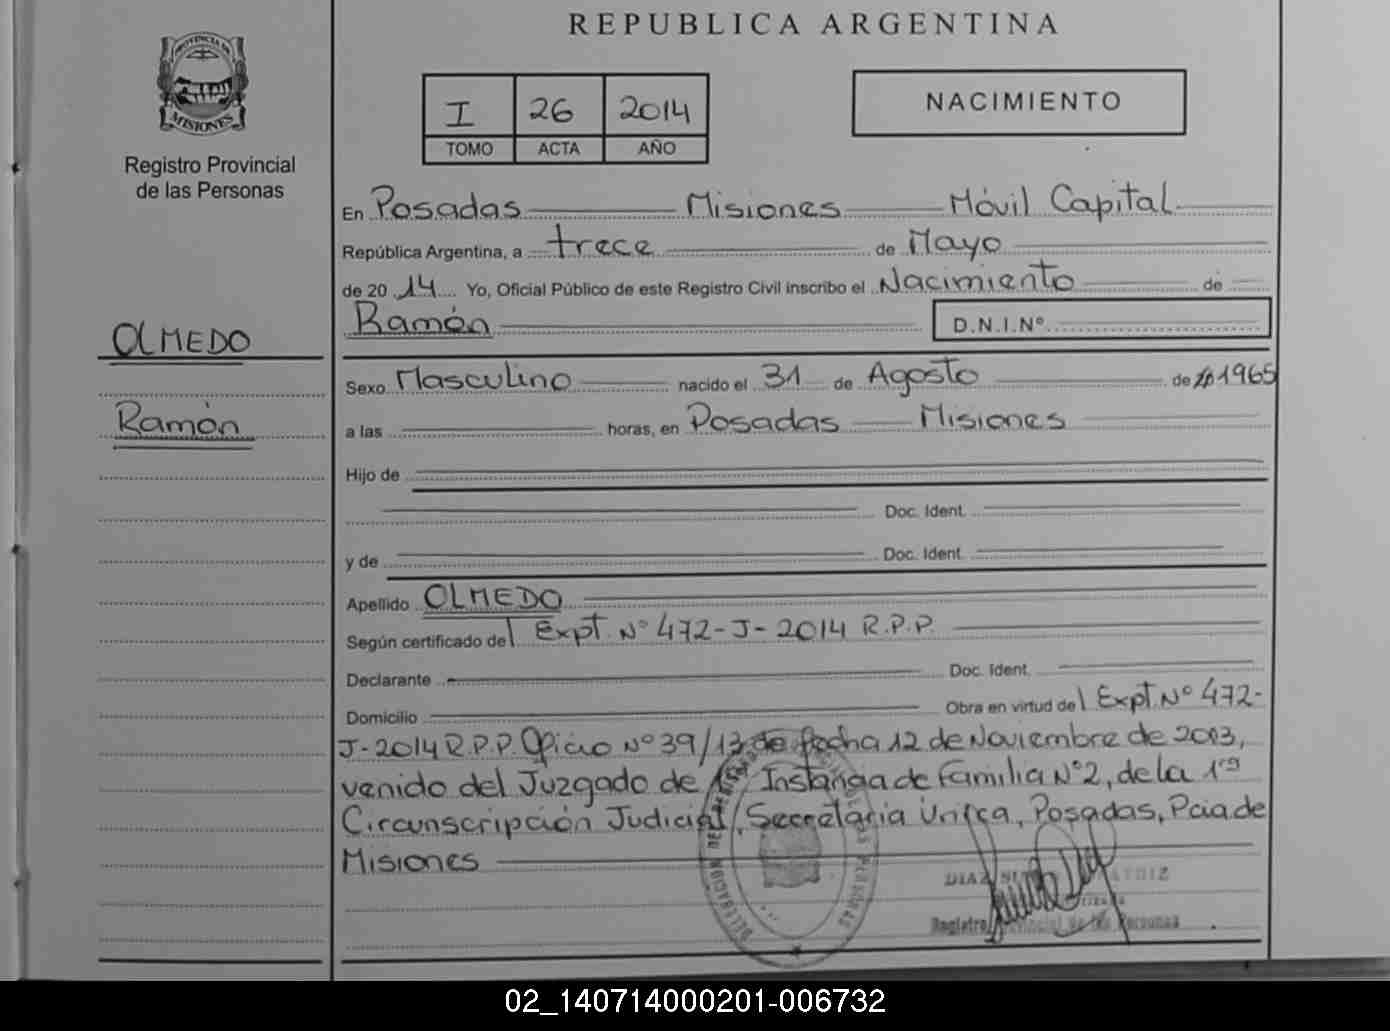 REPUBLICA ARGENTINA
PROVINCIA DE
MISIONES
Registro Provincial
de las Personas
I 26 2014
TOMO ACTA AÑO
NACIMIENTO
En Posadas Misiones Móvil Capital
República Argentina, a trece de Mayo
de 20 14 Yo, Oficial Público de este Registro Civil inscribo el Nacimiento de
Ramón D.N.I.Nº
OLMEDO
Ramón
Sexo Masculino nacido el 31 de Agosto de 1965
a las horas, en Posadas Misiones
Hijo de
Doc. Ident.
y de Doc. Ident.
Apellido OLMEDO
Según certificado del Expt. Nº 472-J-2014 R.P.P.
Declarante Doc. Ident.
Domicilio Obra en virtud del Expt. Nº 472-
J-2014 R.P.P. Oficio Nº 39/13 de fecha 12 de Noviembre de 2013,
venido del Juzgado de Instancia de Familia Nº2, de la 1ra
Circunscripción Judicial, Secretaria Única, Posadas, Pcia de
Misiones
DELEGACION
PERSONAS
DIAZ
Registro Provincial de las Personas
02_140714000201-006732